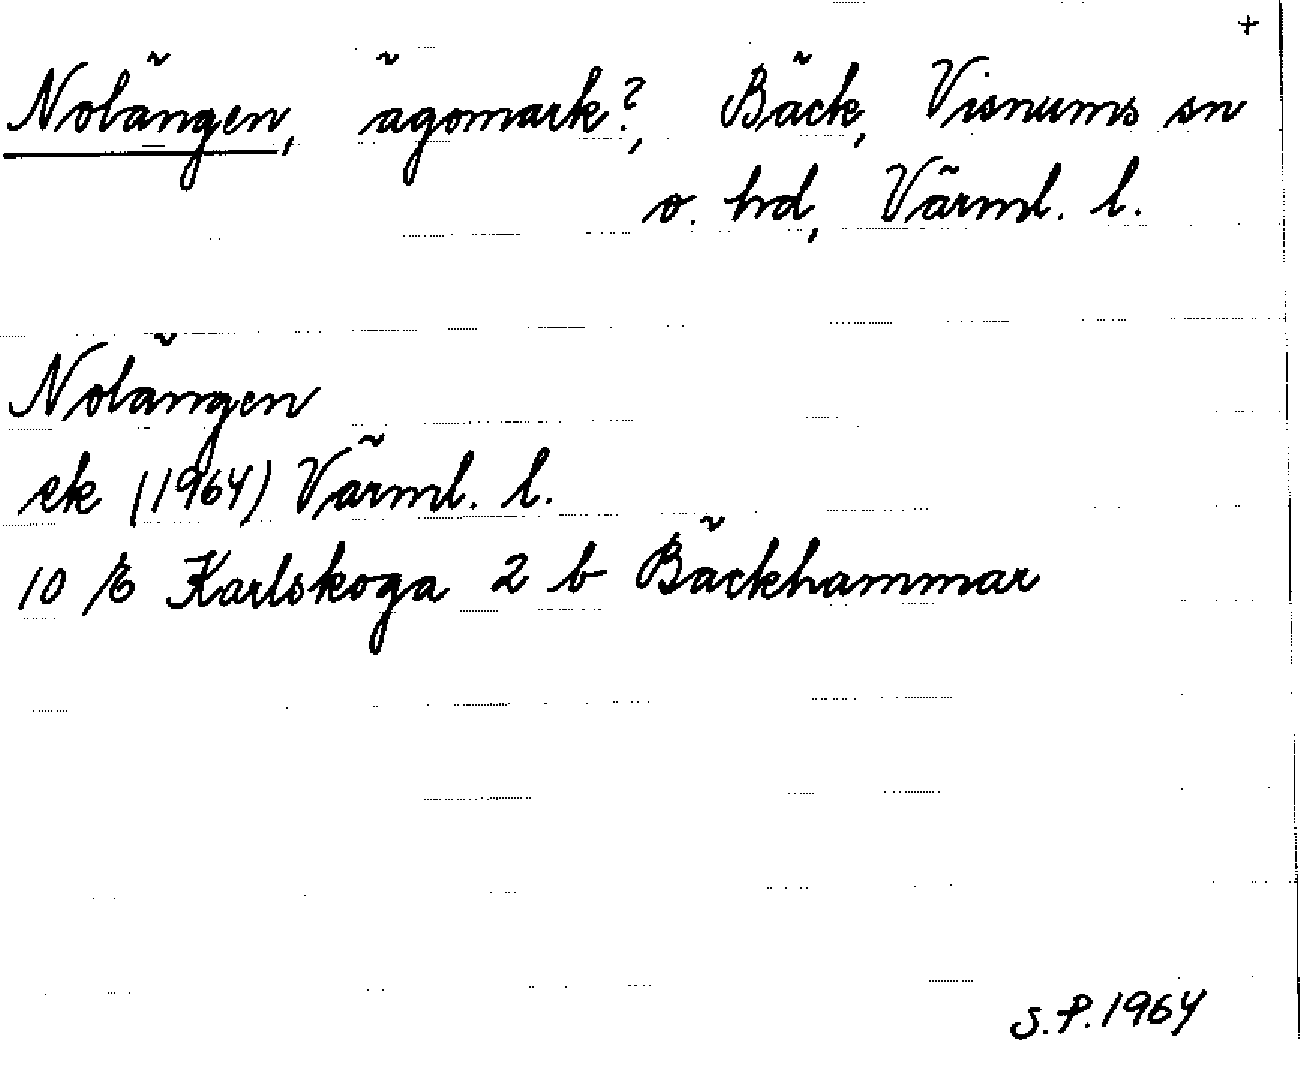 +
Nolängen, ägomark?, Bäck, Visnums sn
o. hd, Värml. l.
Nolängen
ek (1964) Värml. l.
10 E Karlskoga 2 b Bäckhammar
S.P. 1964